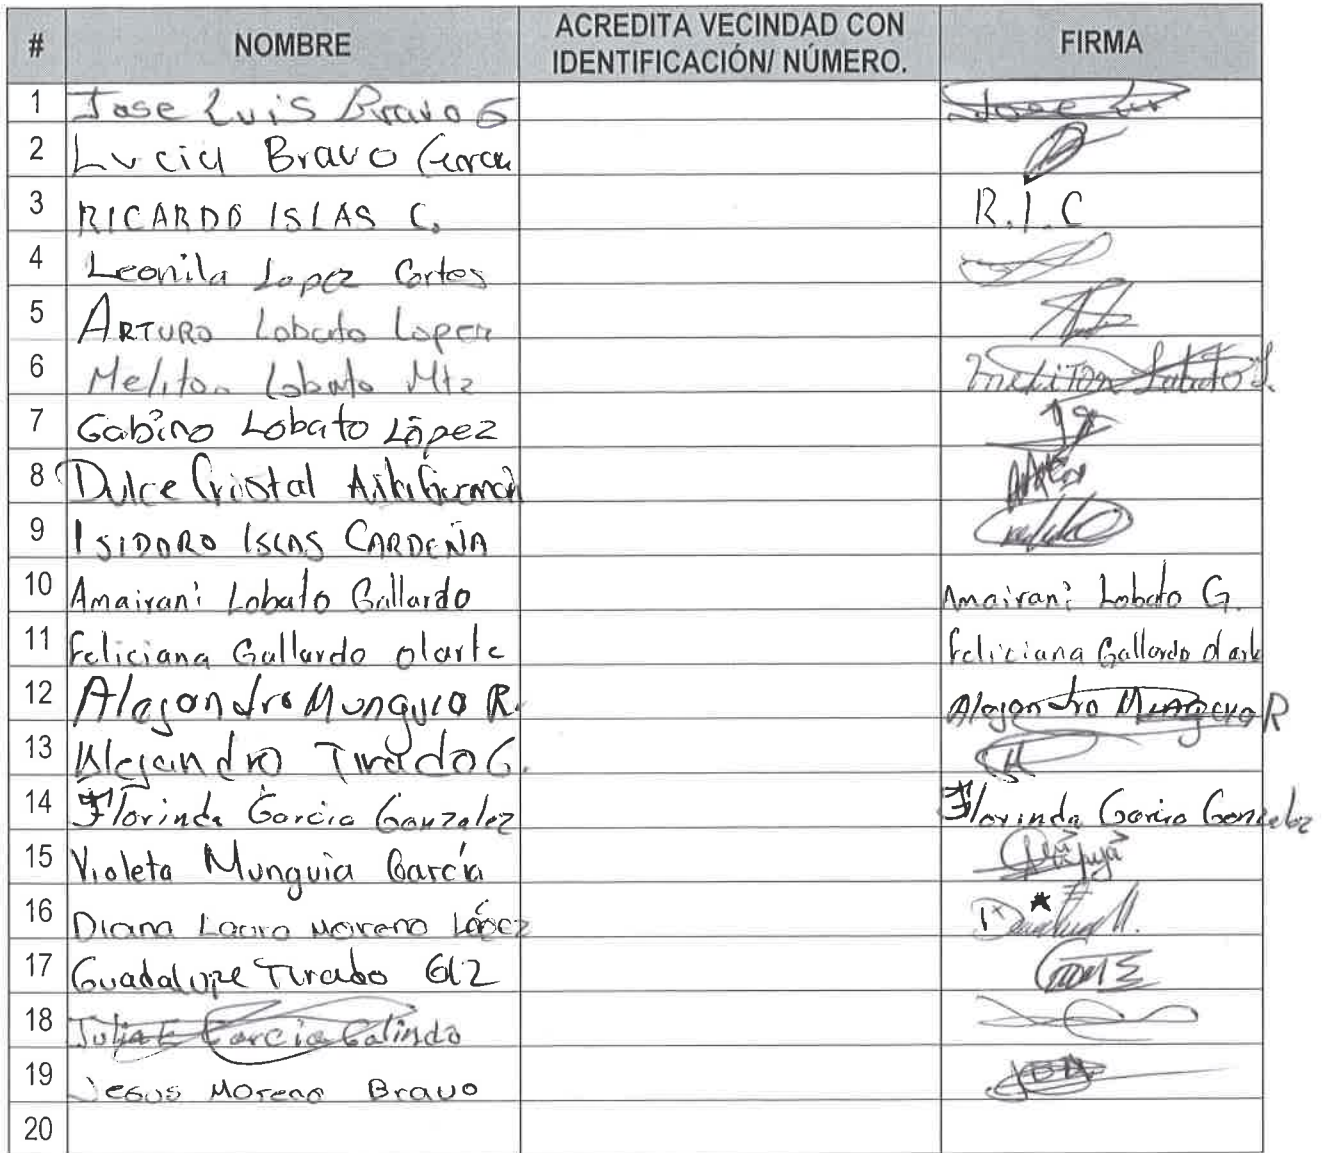 # NOMBRE ACREDITA VECINDAD CON IDENTIFICACIÓN/ NÚMERO. FIRMA
1 Jose Luis Bravo G Jose
2 Lucia Bravo
3 RICARDO ISLAS C. R.I.C
4 Leonila Lopez Cortes
5 ARTURO Lobato Lopez
6 Meliton Lobato Mtz Meliton Lobato
7 Gabino Lobato López
8 Dulce Cristal
9 ISIDORO ISLAS CARDEÑA
10 Amairani Lobato Gallardo Amairani Lobato G.
11 Feliciana Gallardo olarte Feliciana Gallardo olarte
12 Alejandro Munguia R. Alejandro Munguia R
13 Alejandro Tirado G.
14 Florinda Garcia Gonzalez Florinda Garcia Gonzalez
15 Violeta Munguia García
16 Diana Laura Moreno López
17 Guadalupe Tirado Glz
18 Garcia Galindo
19 Jesus Moreno Bravo
20